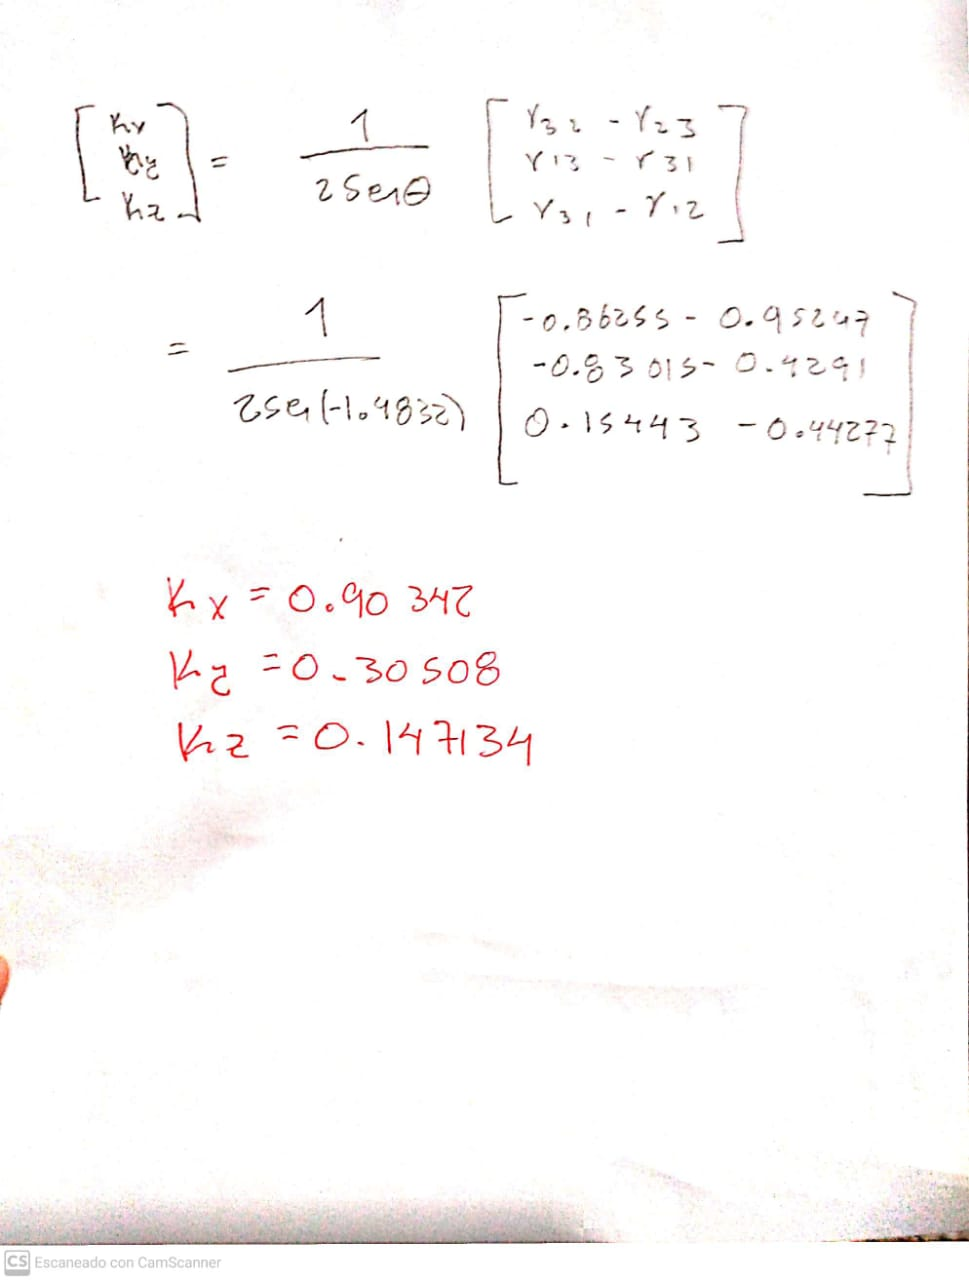 [kx ky kz] = 1 / 2 Sen θ [r32 - r23
r13 - r31
r31 - r12]
= 1 / 2sen(-1.4832) [-0.86255 - 0.95247
-0.83015 - 0.4291
0.15443 - 0.44277]
Kx = 0.90342
Ky = 0.30508
Kz = 0.147134
CS Escaneado con CamScanner